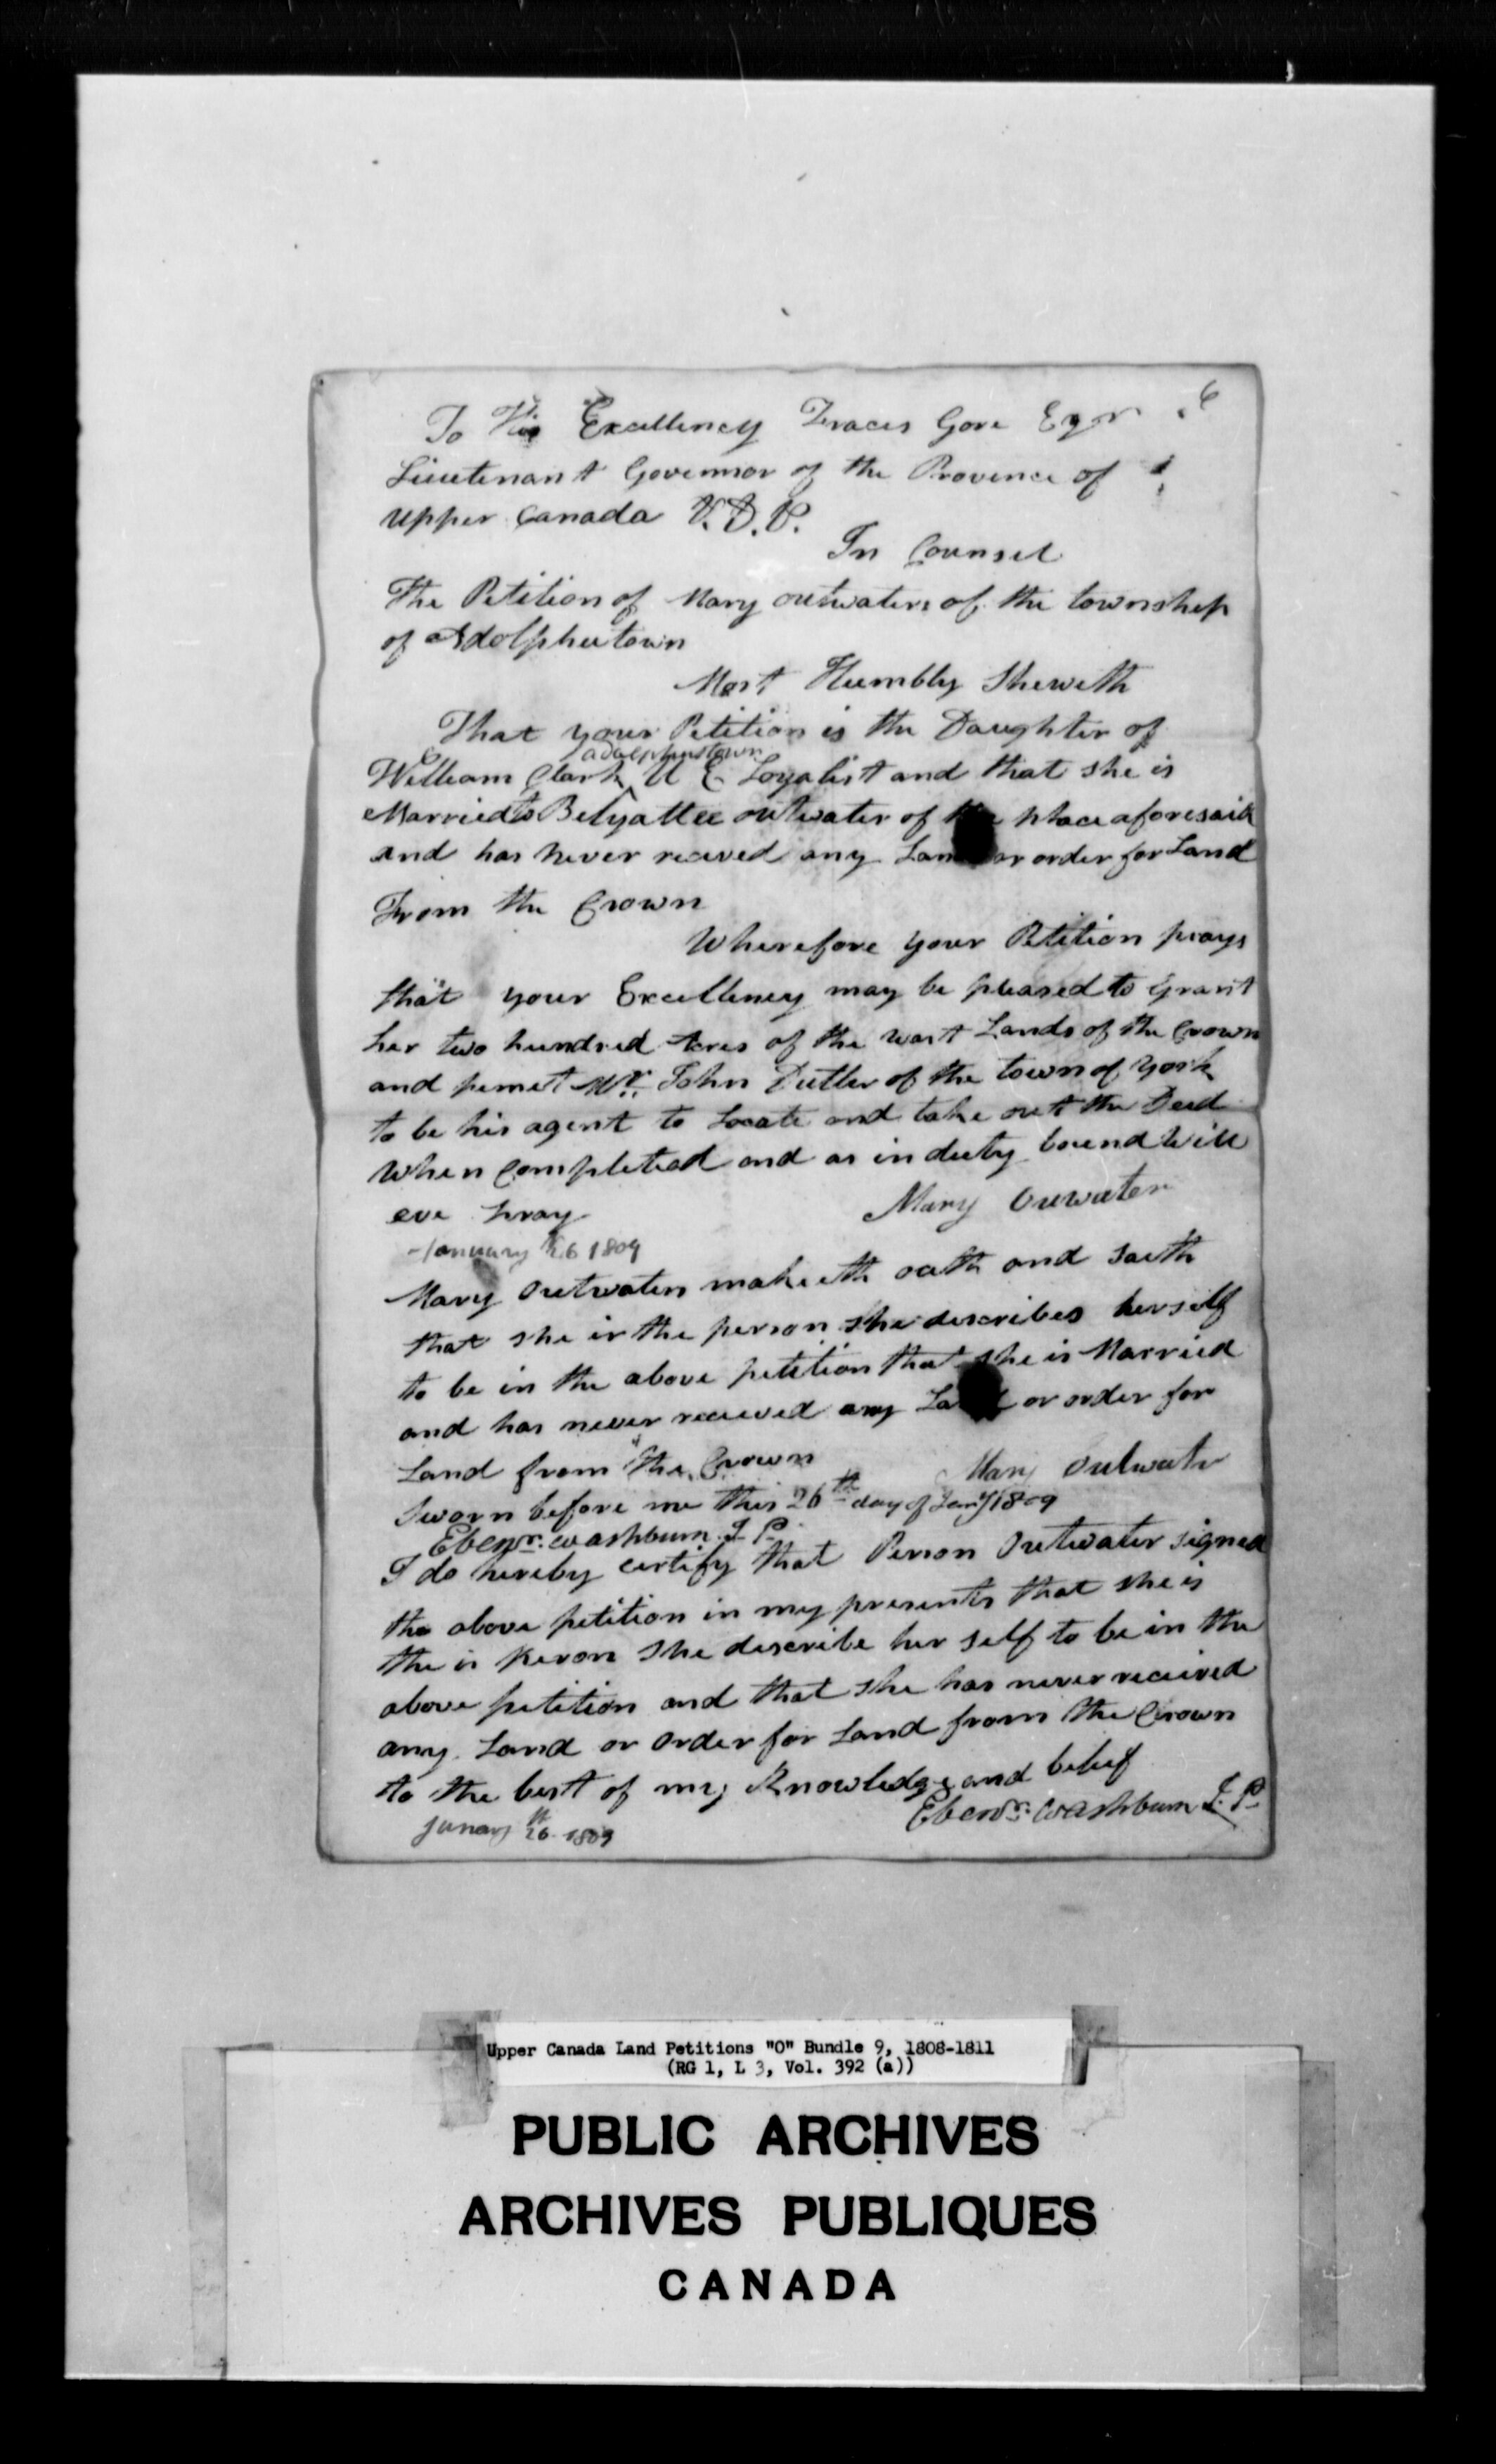 To His Excellency Fraces Gore Eqr
Lieutenant Governor of the Province of
upper Canada
In Counsel
The Petition of Mary outwaters of the township
of Adolphustown
Most Humbly Sheweth
That your Petition is the Daughter of
adolphustown
William Clark U E Loyalist and that she is
Married to outwater of the place aforesaid
and has never receved any Land or order for Land
From the Crown
Wherefore your Petition prays
that your Excellency may be pleased to Grant
her two hundred Acres of the wast Lands of the Crown
and permet Mr. John of the town of york
to be his agent to Locate and take out the Deed
when completed and as in duty bound will
eve pray
Mary Ouwater
January 26 1809
Mary Outwaters maketh oath and saith
that she is the person she describes herself
to be in the above petition that she is Married
and has never receved any Land or order for
Land from the Crown
Mary Outwater
Sworn before me this 26th day of Jany 1809
Ebenr. Washburn J. P.
I do hereby certify that Person Outwater signed
the above petition in my presents that she is
the is person she describe her self to be in the
above petition and that she has never received
any Land or order for Land from the Crown
to the best of my Knowledge and belief
Ebenr. Washburn J. P.
26th 1809
Upper Canada Land Petitions "O" Bundle 9, 1808-1811
(RG 1, L 3, Vol. 392 (a))
PUBLIC ARCHIVES
ARCHIVES PUBLIQUES
CANADA